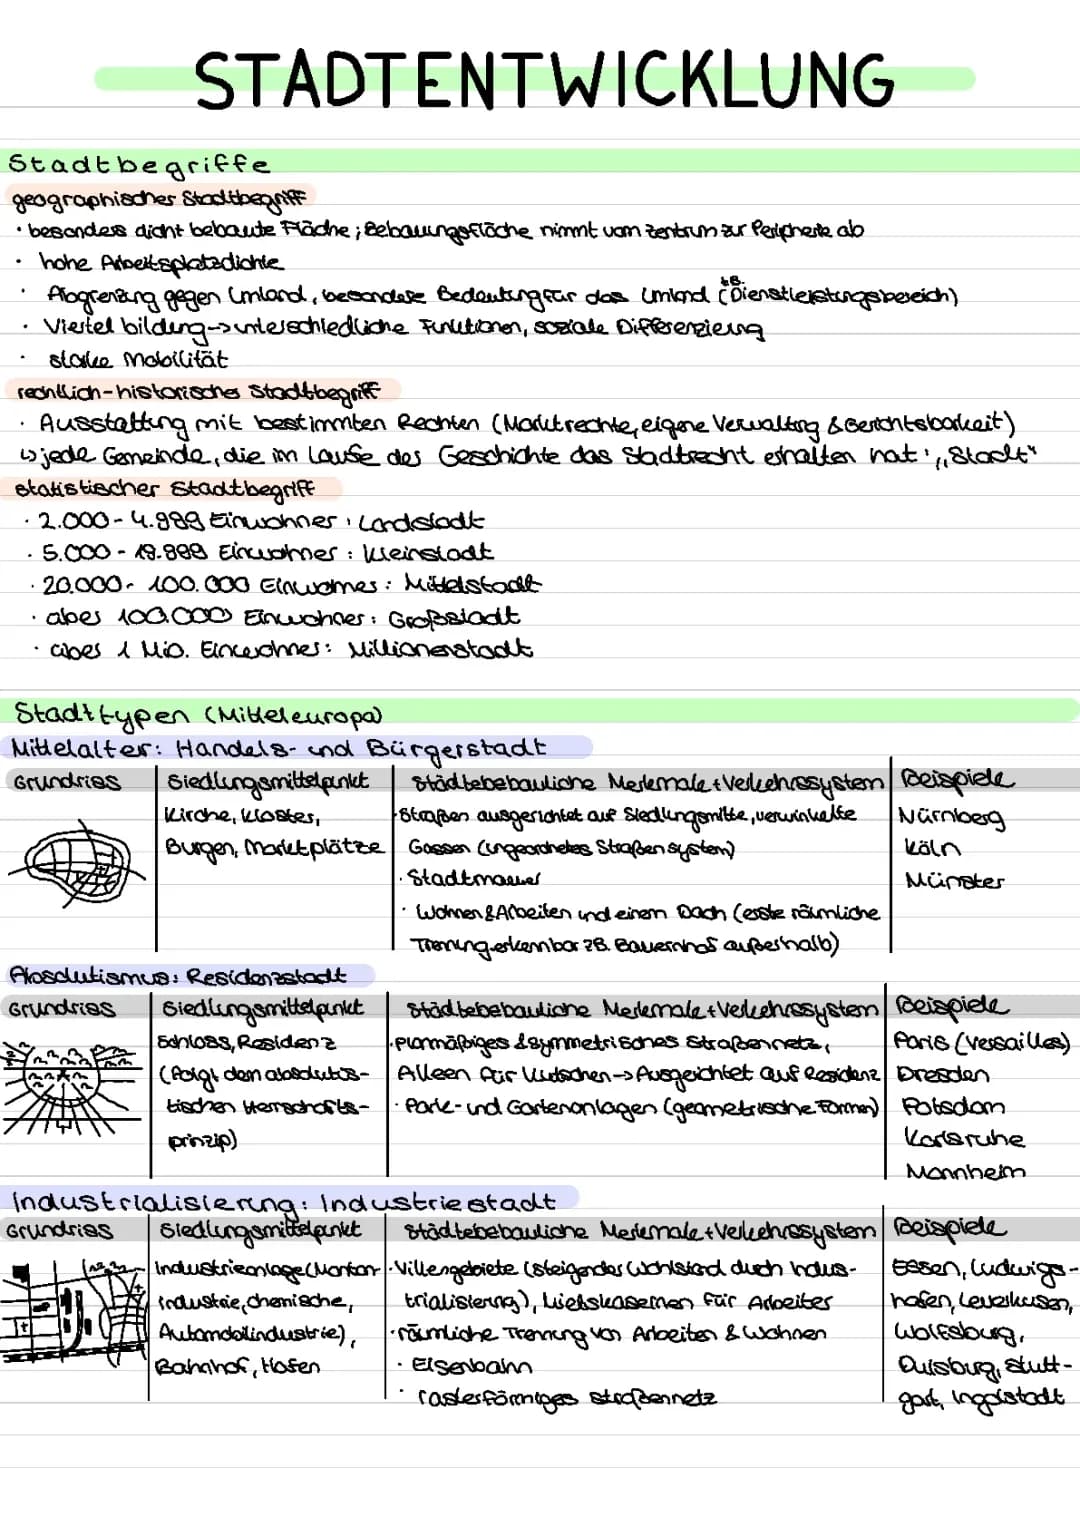 STADTENTWICKLUNG
Stadtbegriffe
geographischer Stadtbegriff
· besonders dicht bebaute Fläche; Bebauungsfläche nimmt vom Zentrum zur Peripherie ab
· hohe Arbeitsplatzdichte
· Abgrenzung gegen Umland, besondere Bedeutung für das Umland (z.B. Dienstleistungsbereich)
· Viertelbildung -> unterschiedliche Funktionen, soziale Differenzierung
· starke Mobilität
rechtlich-historischer Stadtbegriff
· Ausstattung mit bestimmten Rechten (Marktrechte, eigene Verwaltung & Gerichtsbarkeit)
↳ jede Gemeinde, die im Laufe der Geschichte das Stadtrecht erhalten hat: „Stadt"
statistischer Stadtbegriff
· 2.000 - 4.999 Einwohner: Landstadt
· 5.000 - 19.999 Einwohner: Kleinstadt
· 20.000 - 100.000 Einwohner: Mittelstadt
· über 100.000 Einwohner: Großstadt
· über 1 Mio. Einwohner: Millionenstadt
Stadttypen (Mitteleuropa)
Mittelalter: Handels- und Bürgerstadt
Grundriss Siedlungsmittelpunkt Städtebebauliche Merkmale + Verkehrssystem Beispiele
Kirche, Kloster, · Straßen ausgerichtet auf Siedlungsmitte, verwinkelte Nürnberg
Burgen, Marktplätze Gassen (ungeordnetes Straßensystem) Köln
· Stadtmauer Münster
· Wohnen & Arbeiten und einem Dach (erste räumliche
Trennung erkennbar zB. Bauernhof außerhalb)
Absolutismus: Residenzstadt
Grundriss Siedlungsmittelpunkt Städtebebauliche Merkmale + Verkehrssystem Beispiele
Schloss, Residenz · planmäßiges & symmetrisches Straßennetz, Paris (Versailles)
(folgt dem absolutis- Alleen für Kutschen -> Ausgerichtet auf Residenz Dresden
tischen Herrschafts- · Park- und Gartenanlagen (geometrische Formen) Potsdam
prinzip) Karlsruhe
Mannheim
Industrialisierung: Industriestadt
Grundriss Siedlungsmittelpunkt Städtebebauliche Merkmale + Verkehrssystem Beispiele
Industrieanlage (Montan- · Villengebiete (steigender Wohlstand durch Indus- Essen, Ludwigs-
industrie, chemische, trialisierung), Mietskasernen für Arbeiter hafen, Leverkusen,
Automobilindustrie), · räumliche Trennung von Arbeiten & Wohnen Wolfsburg,
Bahnhof, Hafen · Eisenbahn Duisburg, Stutt-
· rasterförmiges Straßennetz gart, Ingolstadt